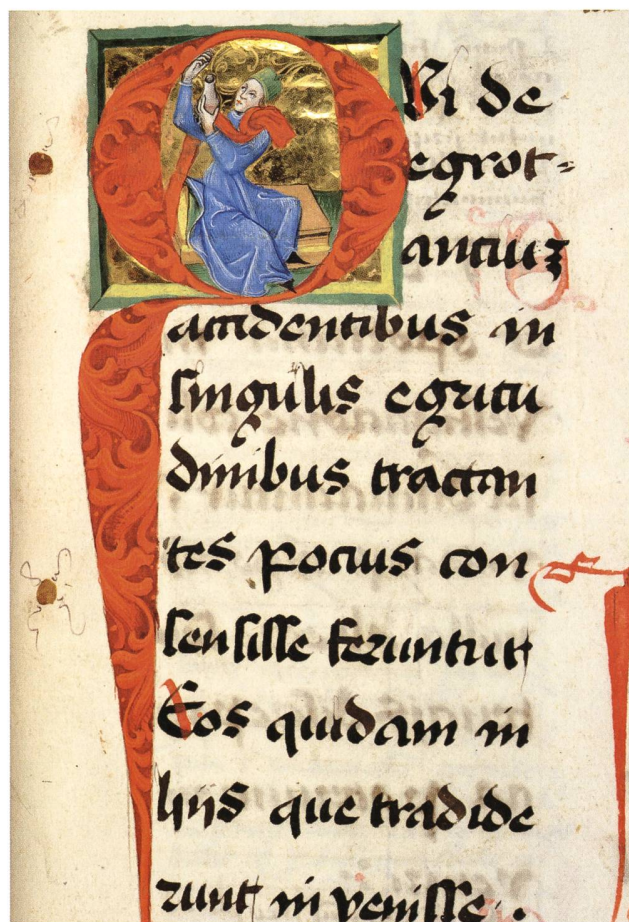 QUi de
egrot=
antiuz
accidentibus in
singulis egritu
dinibus tractan
tes pocius con
sensisse feruntur
Eos quidam in
hijs que tradide
runt in venisse.